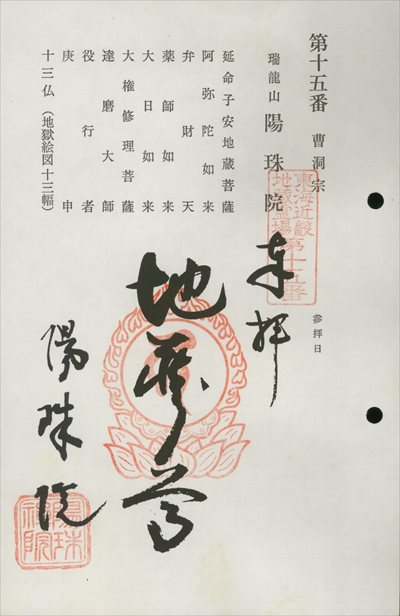 第十五番 曹洞宗
瑞龍山 陽珠院
延命子安地蔵菩薩
阿弥陀如来
弁財天
薬師如来
大日如来
大権修理菩薩
達磨大師
役行者
庚申
十三仏（地獄絵図十三幅）
参拝日
東海近畿
地蔵霊場第十五番
奉拝
地蔵尊
陽珠院
陽珠
院